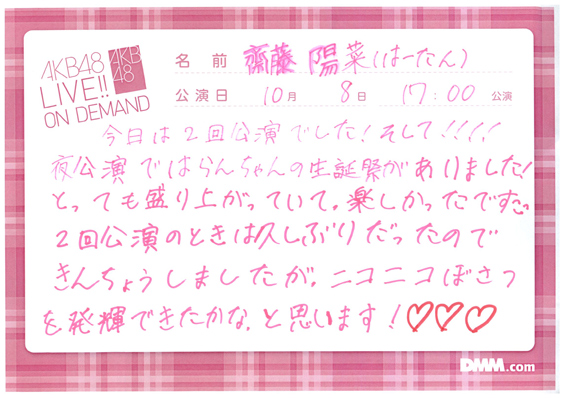 AKB48 LIVE!! ON DEMAND
AKB48
名前 齋藤 陽菜(はーたん)
公演日 10月 8日 17:00 公演
今日は2回公演でした!そして!!!!
夜公演ではらんちゃんの生誕祭がありました!
とっても盛り上がっていて。楽しかったです
2回公演のときは久しぶりだったので
きんちょうしましたが。ニコニコぼさつ
を発揮できたかな。と思います!♡♡♡
DMM.com